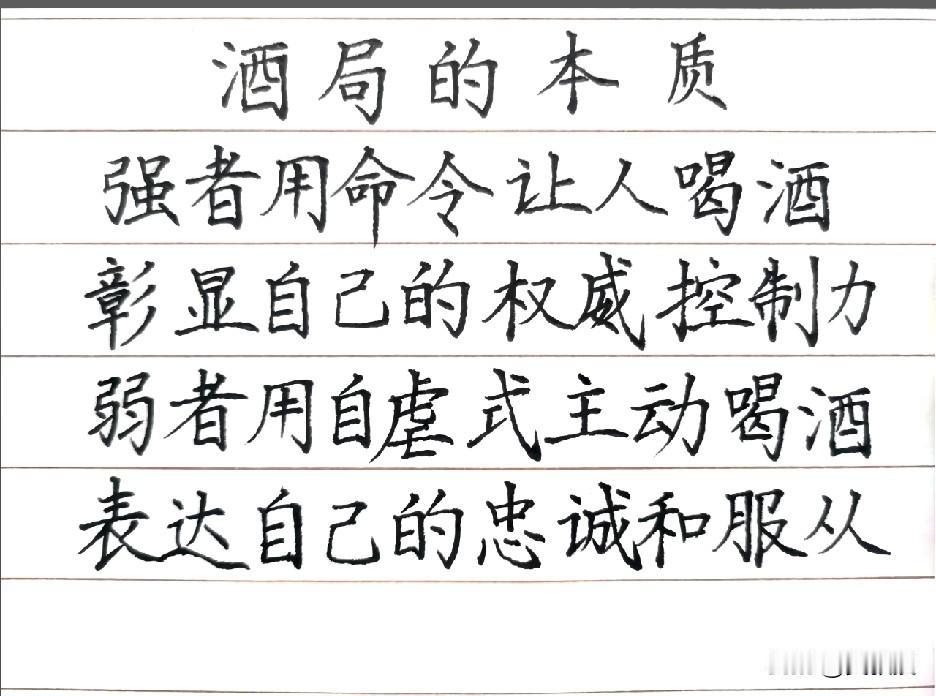 酒局的本质
强者用命令让人喝酒
彰显自己的权威控制力
弱者用自虐式主动喝酒
表达自己的忠诚和服从